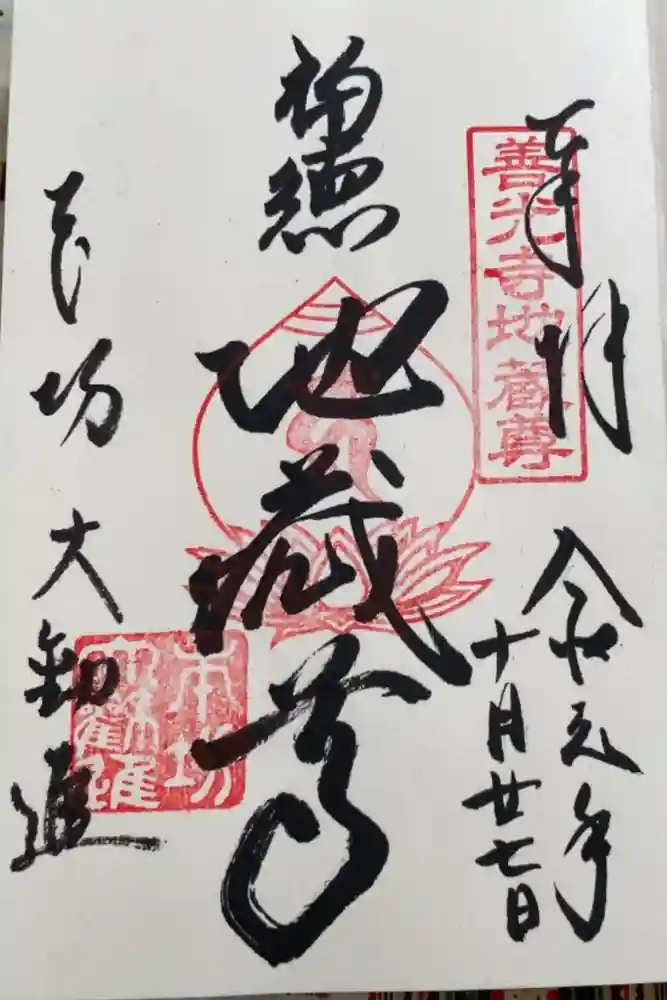 奉拝
令和元年
十月廿七日
善光寺地蔵尊
福徳
地蔵尊
本坊
大勧進